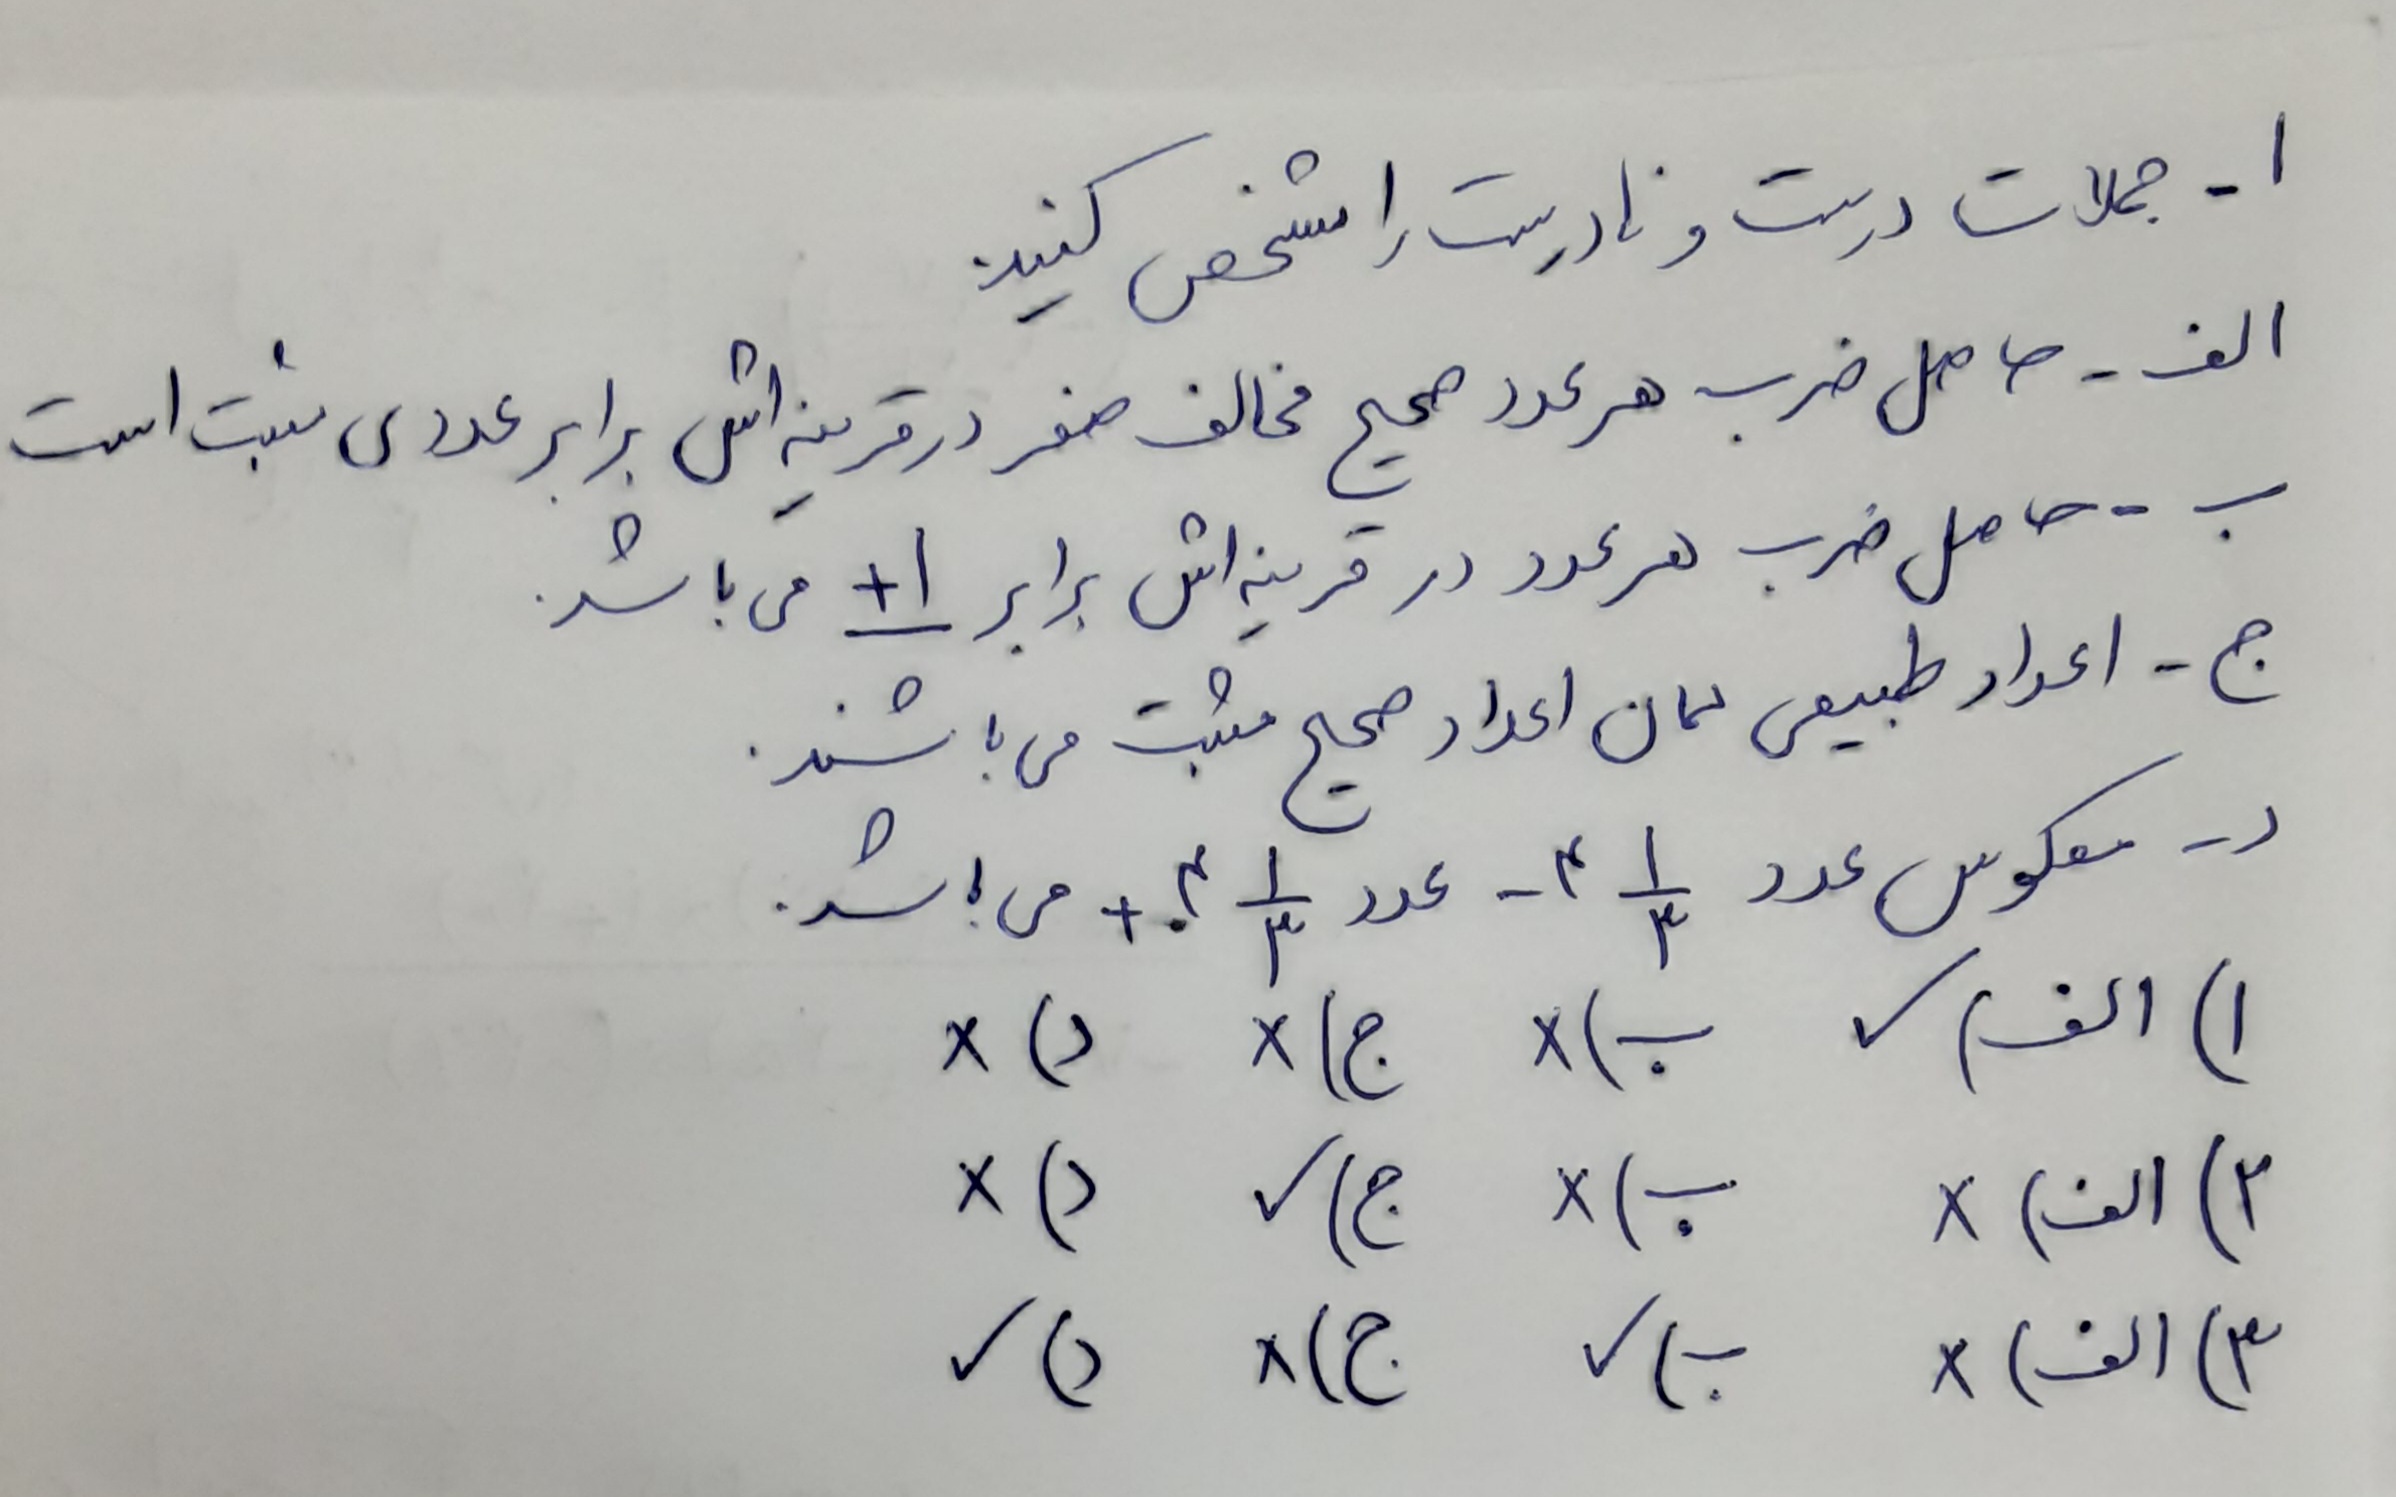 ۱- جملات درست و نادرست را مشخص کنید.
الف - حاصل ضرب هر عدد صحیح مخالف صفر در قرینه‌اش برابر عددی مثبت است
ب - حاصل ضرب هر عدد در قرینه‌اش برابر +۱ می‌باشد.
ج - اعداد طبیعی همان اعداد صحیح مثبت می‌باشند.
د - معکوس عدد -۲ ۱/۳ عدد +۲ ۱/۳ می‌باشد.
۱) الف) ✓ ب) × ج) × د) ×
۲) الف) × ب) × ج) ✓ د) ×
۳) الف) × ب) ✓ ج) × د) ✓